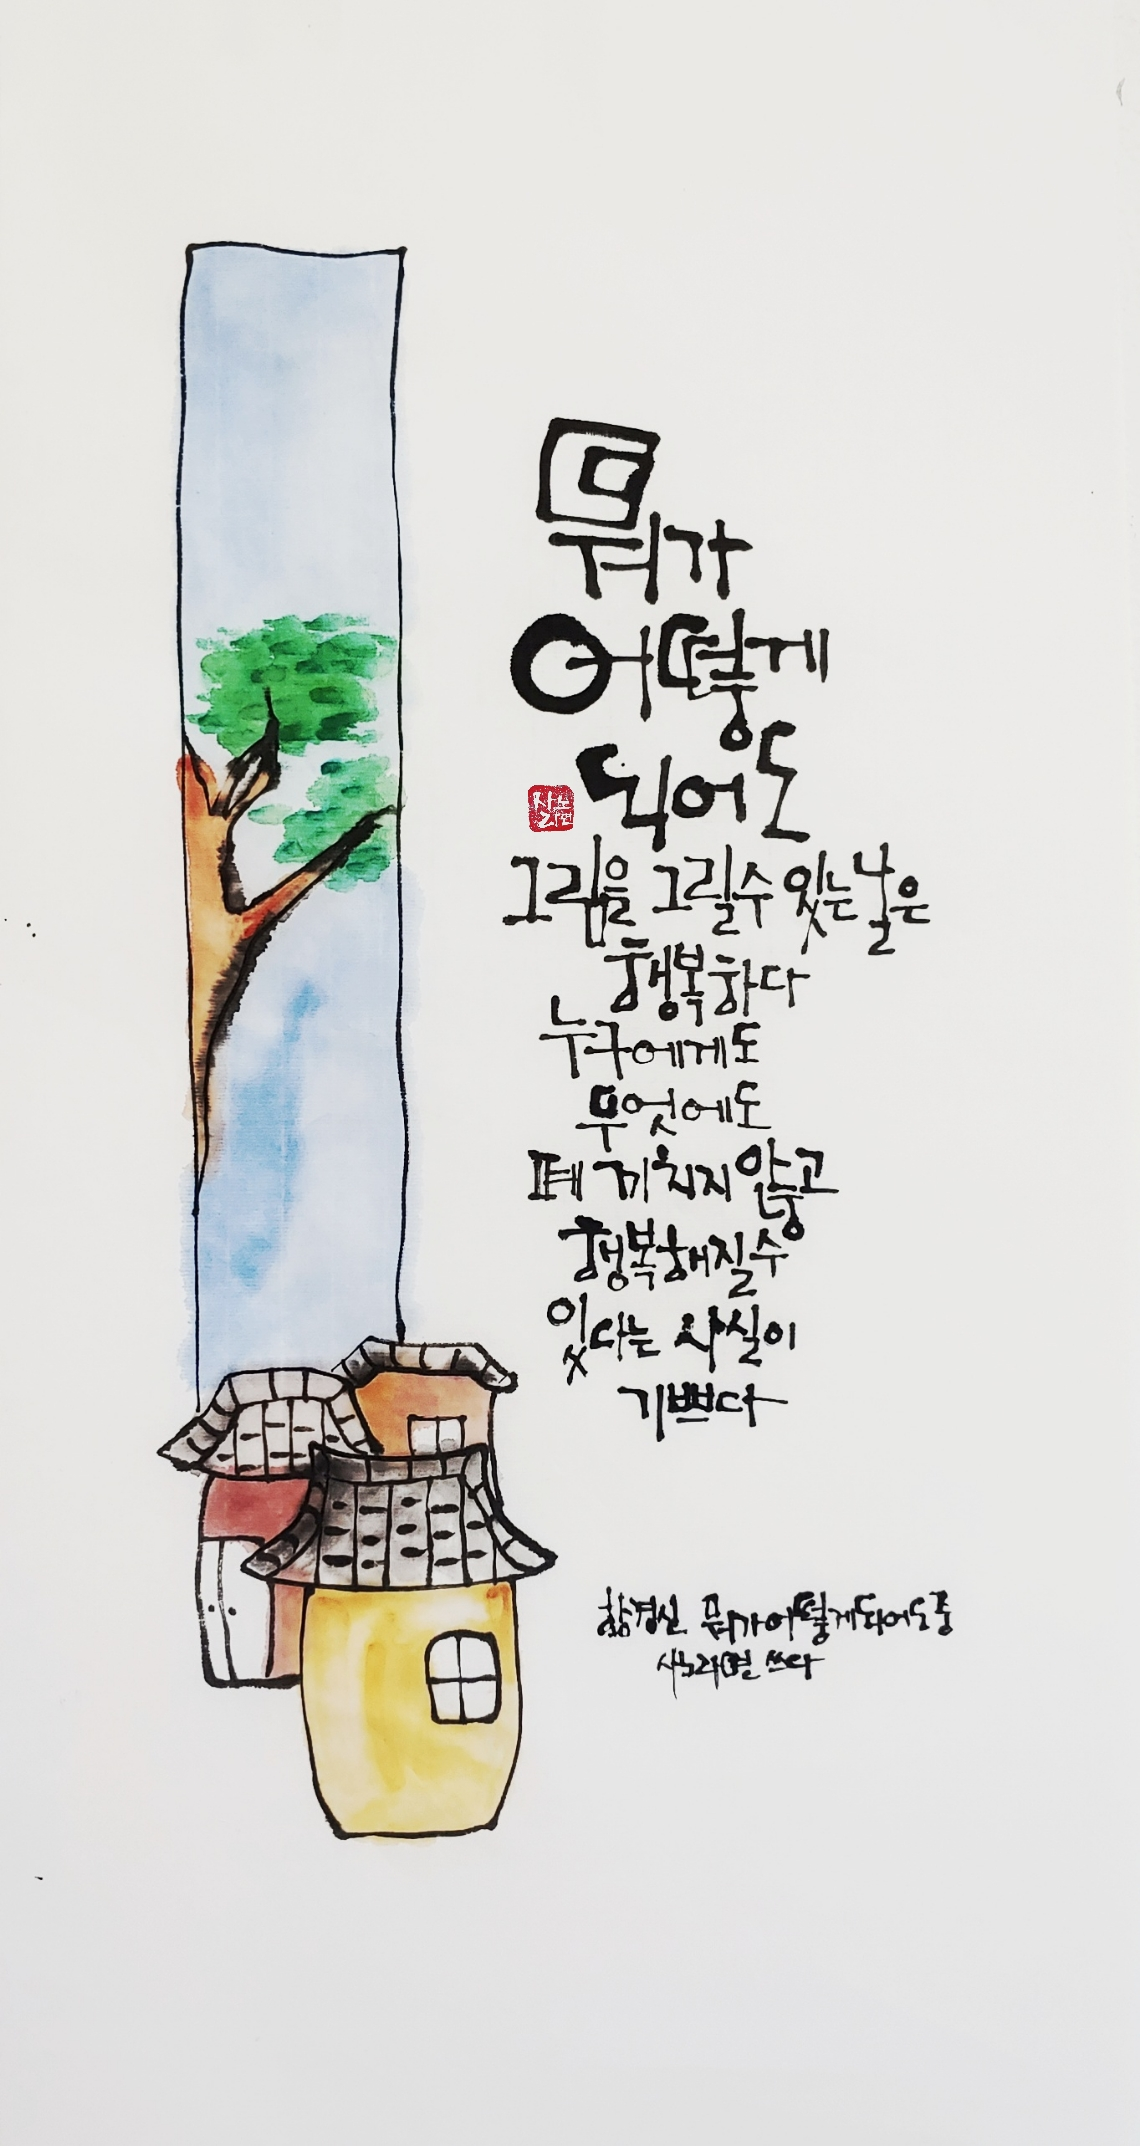 뭐가
어떻게
되어도
그림을 그릴수 있는 날은
행복하다
누구에게도
무엇에도
폐 끼치지 않고
행복해질수
있다는 사실이
기쁘다
황경신 뭐가 어떻게 되어도 중
쓰다